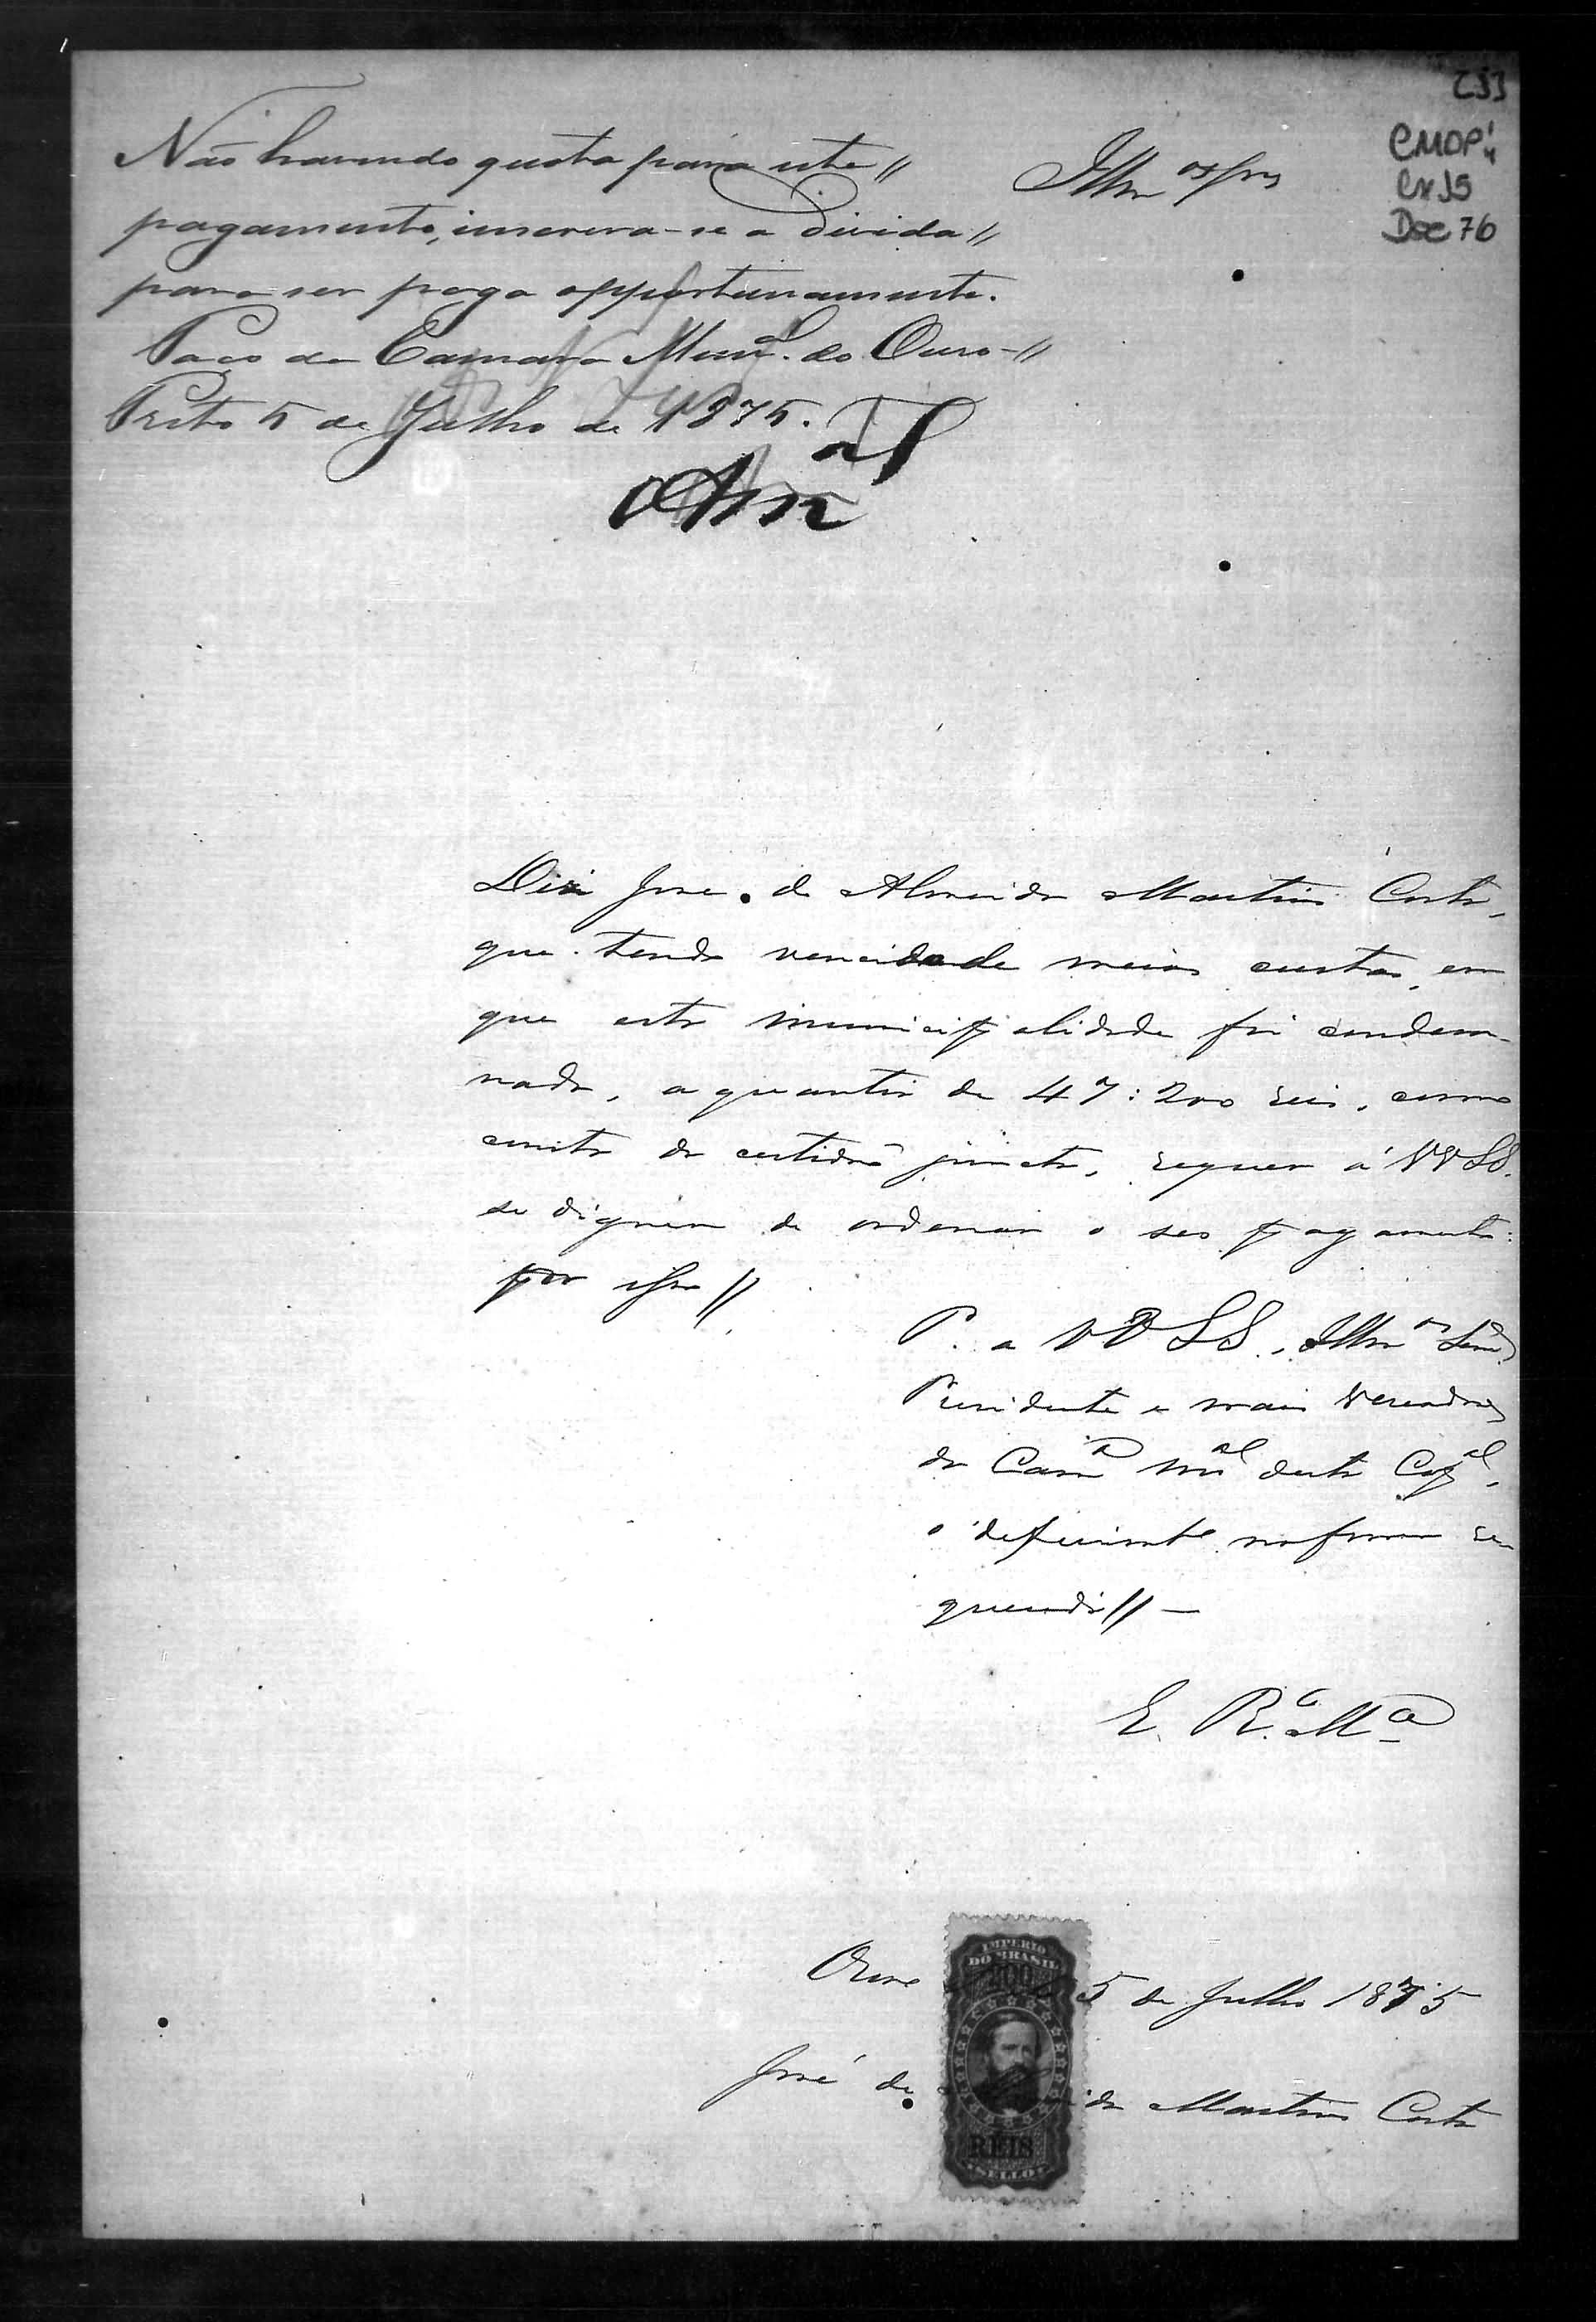 253
CMOP
Cx 35
Doc 76
Não havendo quota para este //
pagamento, inscreva-se a divida //
para ser paga opportunamente.
Paço da Camara Munal. do Ouro- //
Preto 5 de Julho de 1875.
Illmos Snres
Diz José de Almeida Martins Costa,
que tendo vencido de meias custas, em
que esta municipalidade foi condem-
nada, a quantia de 47:200 reis, como
consta da certidão juncta, requer á VV SS.
se dignem de ordenar o seo pagamento:
por isso //
P. a VV SS., Illmos Senres
Presidente e mais Vereadores
da Camа Mal desta Capal,
o deferimento na forma re-
querida // —
E. R. Mce
Ouro 5 de Julho 1875
José de ida Martins Costa
IMPERIO
DO BRASIL
200
REIS
SELLO